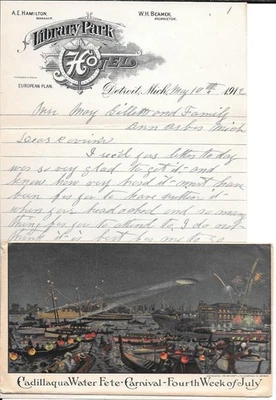 A.E. HAMILTON,
MANAGER.
W.H. BEAMER,
PROPRIETOR.
Library Park
HOTEL
EUROPEAN PLAN.
Detroit, Mich. May 10th 1912
1
Mrs May Gillett and Family
Ann Arbor Mich
Dear Cousins
I rec'd your letter to day
was so very glad to get it and
know how very hard it must have
been for you to have written it
when your head ached and so many
things for you to attend to, I do not
think it is best for me to go
Cadillaqua Water Fete-Carnival-Fourth Week of July